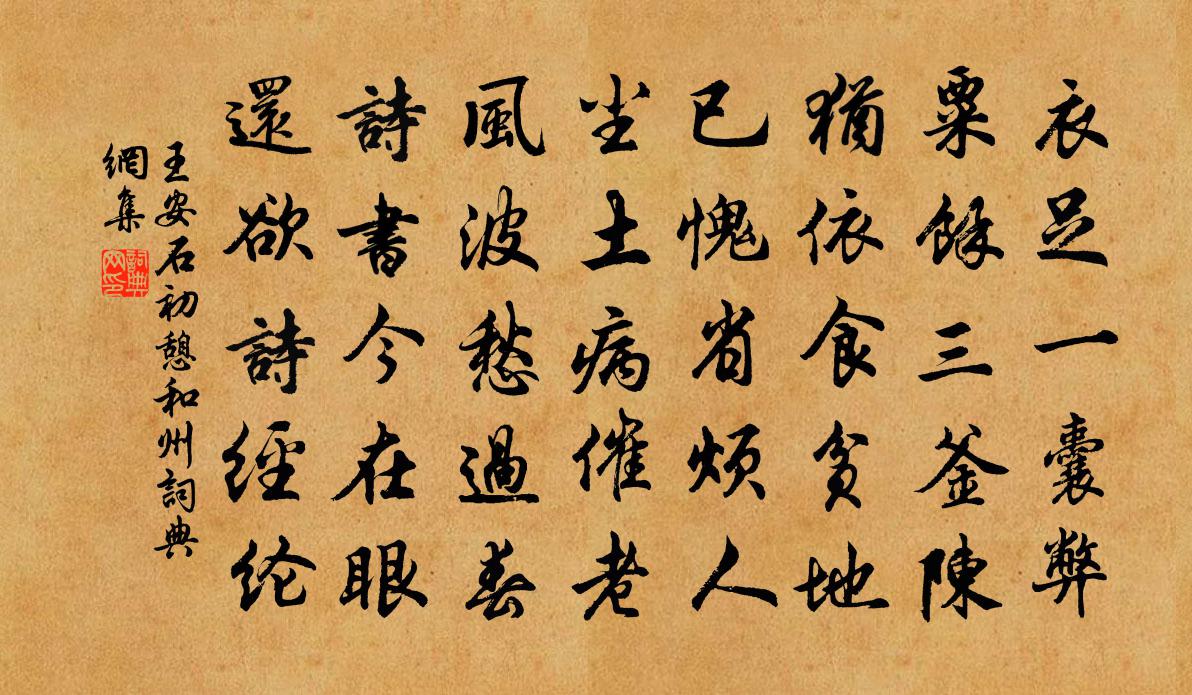 衣足一囊弊
粟餘三釜陳
猶依食貧地
已愧省煩人
坐土病催老
風波愁過春
詩書今在眼
還欲詩經纶
王安石初憩和州詞典
網集
詞典网印